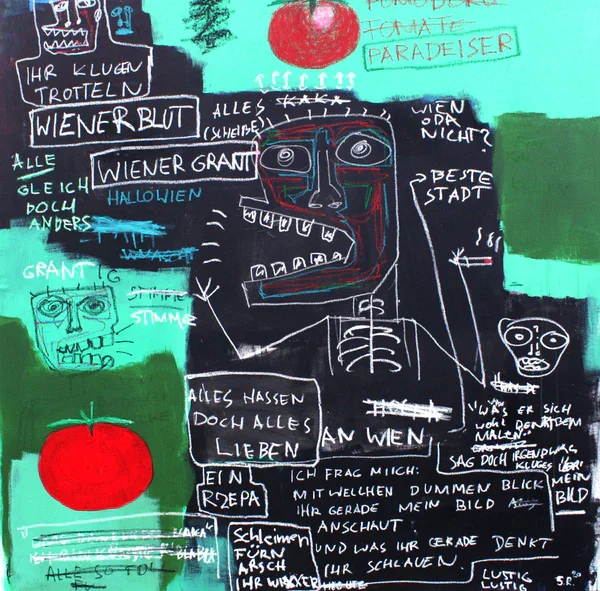 POMODORO
TOMATE
PARADEISER
IHR KLUGEN
TROTTELN
WIENERBLUT
ALLES
KAKA
(SCHEIBE)
WIEN
ODA
NICHT?
WIENER GRANT
ALLE
GLEICH
DOCH
ANDERS
HALLOWIEN
BESTE
STADT
GRANTIG
STIMME
STIMME
ALLES HASSEN
DOCH ALLES
LIEBEN
AN WIEN
"WAS ER SICH
WOHL DENKT DEM
MALEN"
SAG DOCH IRGENDWAS
KLUGES ÜBER
MEIN
BILD
EIN
RZEPA
ICH FRAG MIICH:
MIT WELCHEN DUMMEN BLICK
IHR GERADE MEIN BILD
ANSCHAUT
UND WAS IHR GERADE DENKT
IHR SCHLAUEN.
Schleimen
FÜRN
ARSCH
IHR WIXXER
HEUTE
ALLE SO TOLL
LUSTIG
LUSTIG
S.R.